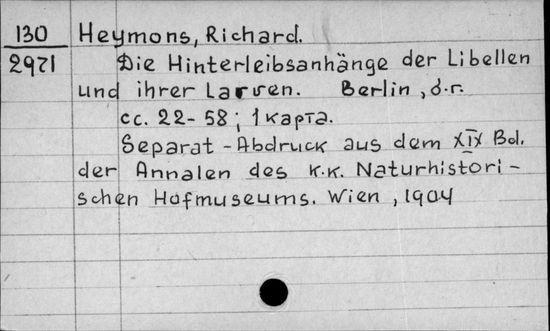 130 Heymons, Richard.
2971 Die Hinterleibsanhänge der Libellen
und ihrer Larven. Berlin, б.г.
сс. 22-58; 1 карта.
Separat-Abdruck aus dem XIX Bd.
der Annalen des K.K. Naturhistori-
schen Hofmuseums. Wien, 1904